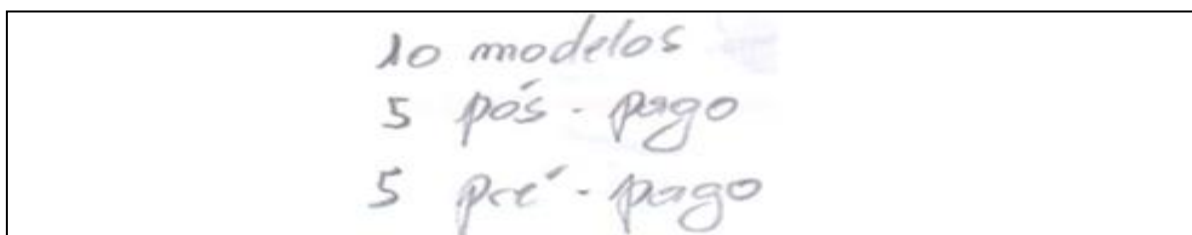 10 modelos
5 pós - pago
5 pré - pago